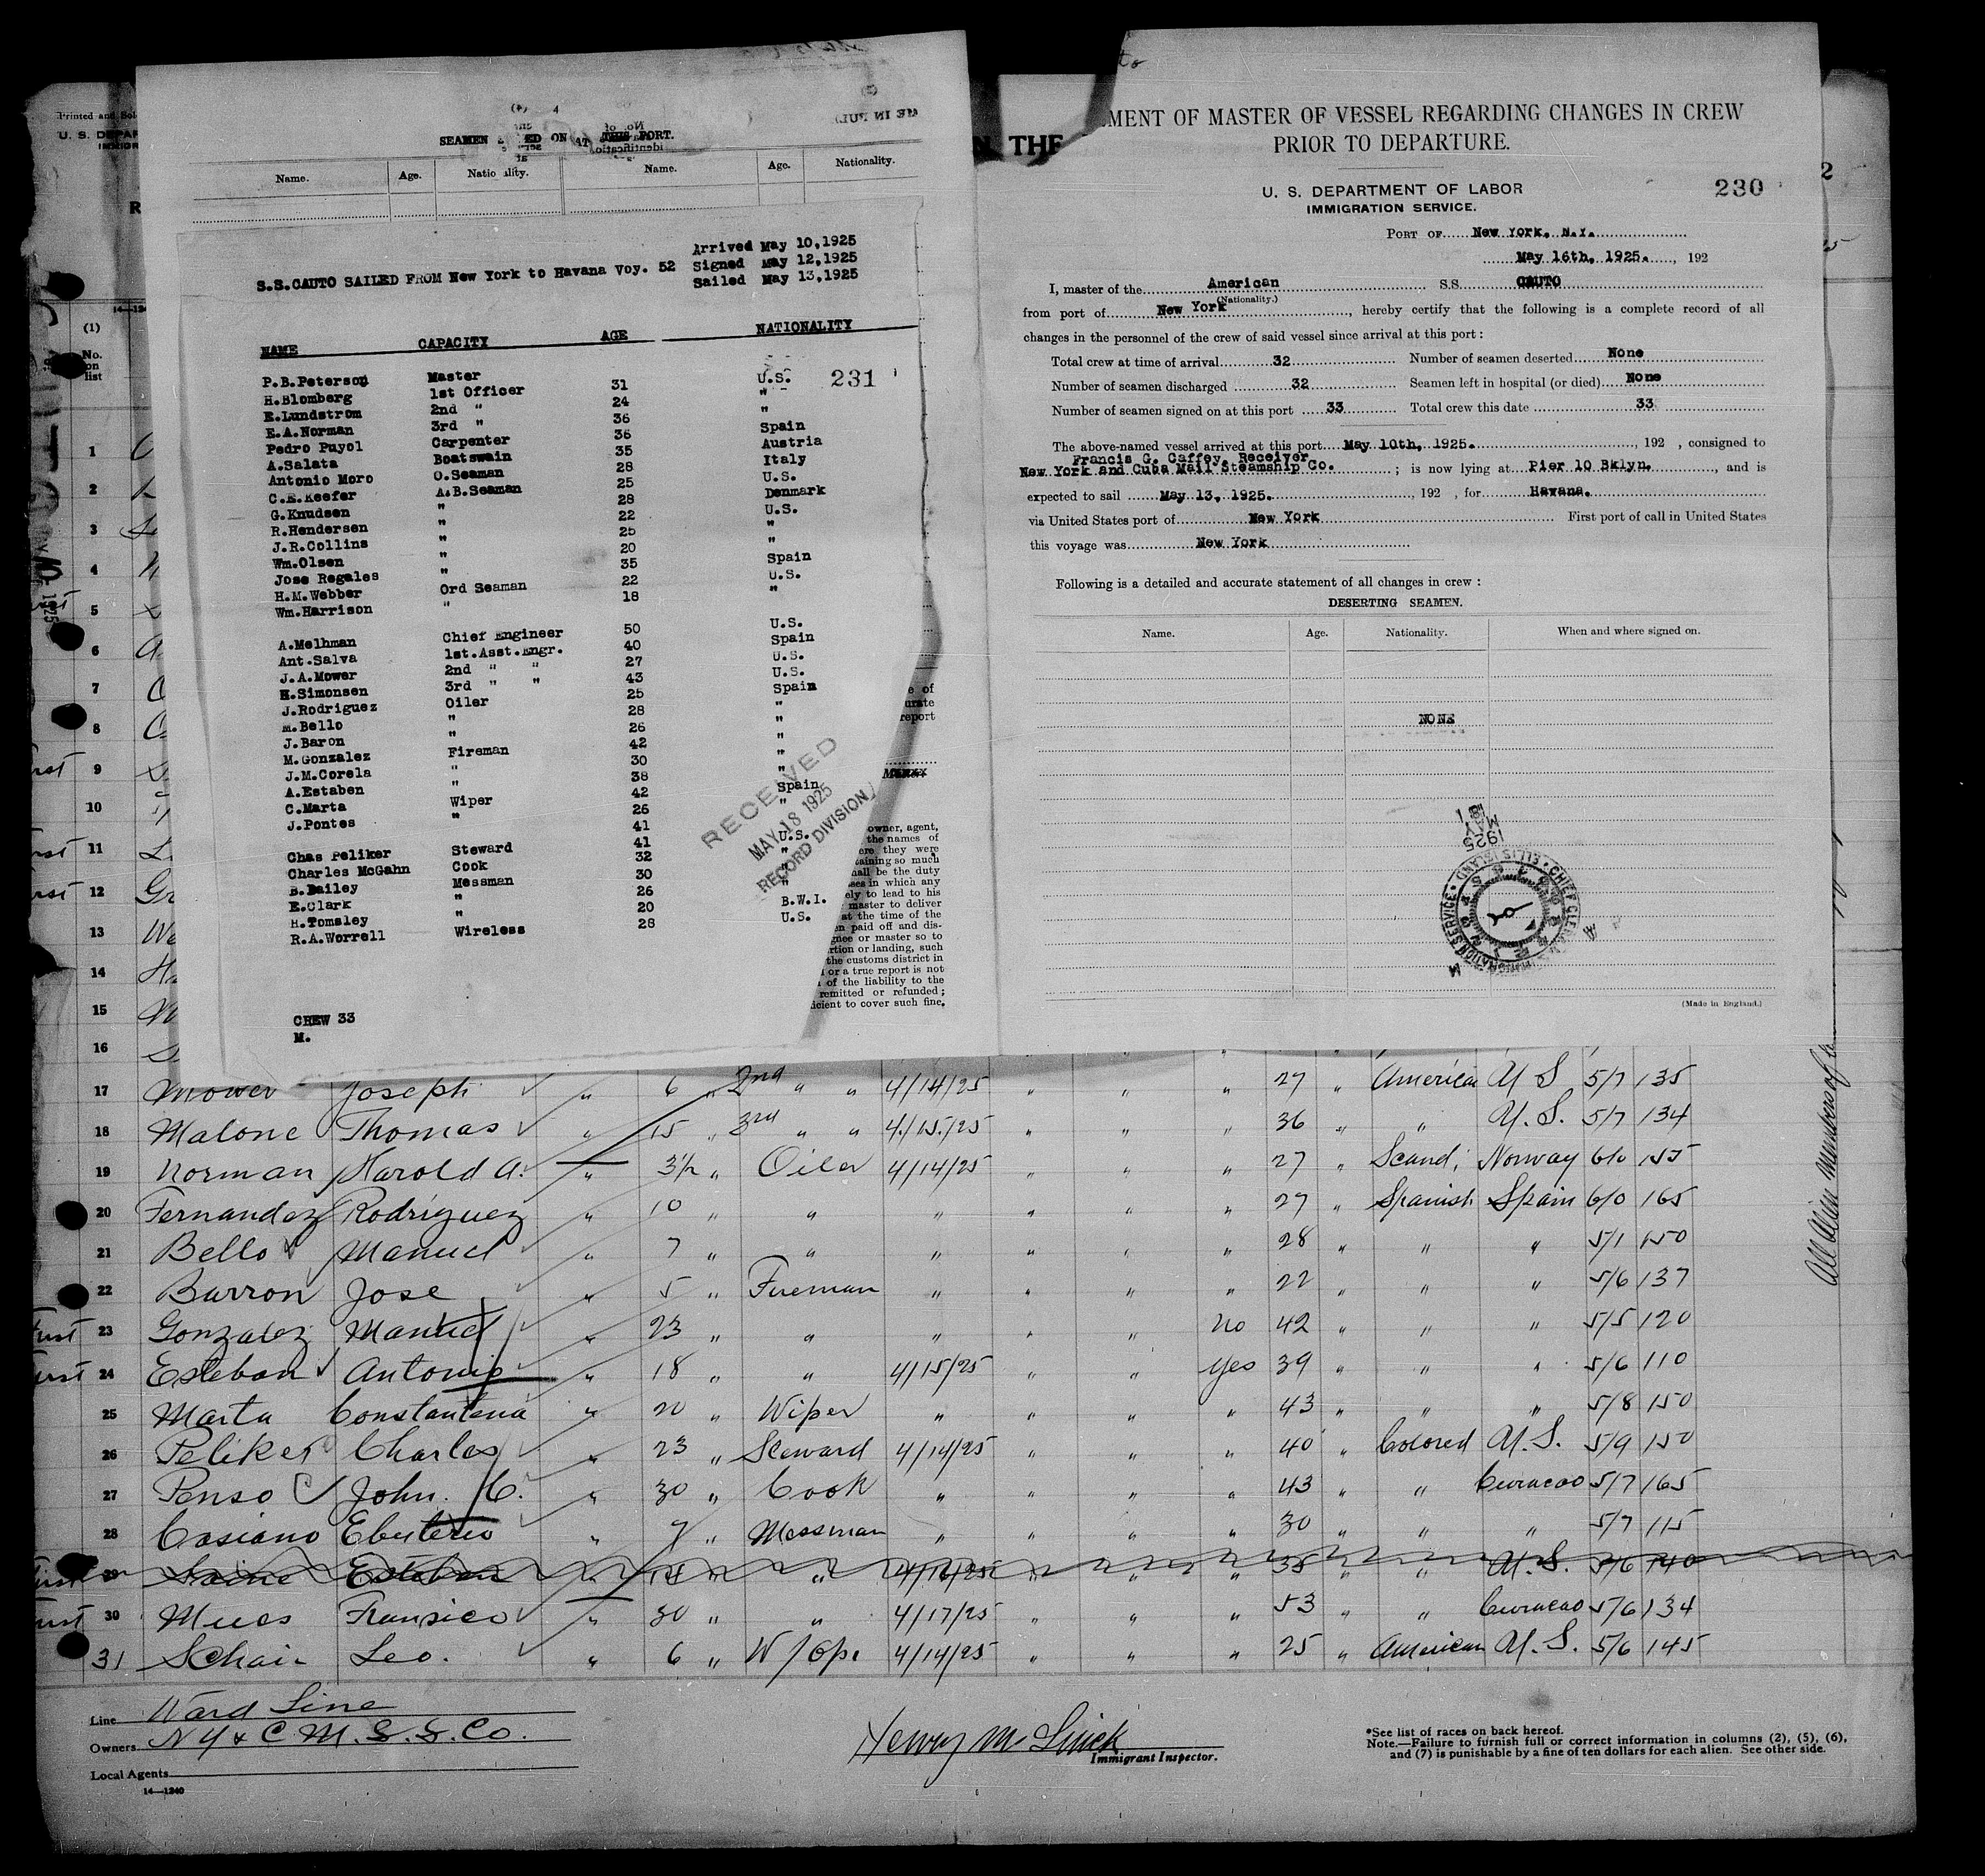 SEAMEN ED ON AT THIS PORT.
Name. Age. Nationality. Name. Age. Nationality.
Arrived May 10,1925
S.S.CAUTO SAILED FROM New York to Havana Voy. 52 Signed May 12,1925
Sailed May 13,1925
NAME CAPACITY AGE NATIONALITY
P.B.Peterson Master U.S. 231
H.Blomberg 1st Officer 31 "
E.Lundstrom 2nd " 24 "
E.A.Norman 3rd " 36
Pedro Puyol Carpenter 36 Spain
A.Salata Boatswain 35 Austria
Antonio Moro O.Seaman 28 Italy
C.E.Keefer A.B.Seaman 25 U.S.
G.Knudsen " 28 Denmark
R.Hendersen " 22 U.S.
J.R.Collins " 25 "
Wm.Olsen " 20 "
Jose Regales " 35 Spain
H.M.Webber Ord Seaman 22 U.S.
Wm.Harrison " 18 "
A.Melhman Chief Engineer 50 U.S.
Ant.Salva 1st.Asst.Engr. 40 Spain
J.A.Mower 2nd " " 27 U.S.
H.Simonsen 3rd " " 43 U.S.
J.Rodriguez Oiler 25 Spain
M.Bello " 28 "
J.Baron " 26 "
M.Gonzalez Fireman 42 "
J.M.Corela " 30 "
A.Estaben " 38 "
C.Marta Wiper 42 Spain
J.Pontes " 26 "
41
Chas Peliker Steward 41 U.S.
Charles McGahn Cook 32 "
B.Bailey Messman 30 "
E.Clark " 26 "
H.Tomsley " 20 B.W.I.
R.A.Worrell Wireless 28 U.S.
RECEIVED
MAY 18 1925
RECORD DIVISION
CREW 33
M.
owner, agent,
the names of
ere they were
taining so much
all be the duty
ses in which any
ely to lead to his
master to deliver
at the time of the
en paid off and dis-
gnee or master so to
rtion or landing, such
the customs district in
or a true report is not
of the liability to the
remitted or refunded;
icient to cover such fine.
N THE
MENT OF MASTER OF VESSEL REGARDING CHANGES IN CREW
PRIOR TO DEPARTURE.
U. S. DEPARTMENT OF LABOR
IMMIGRATION SERVICE.
230
PORT OF New York, N.Y.
May 16th, 1925. , 192
I, master of the American S.S. CAUTO
(Nationality.)
from port of New York , hereby certify that the following is a complete record of all
changes in the personnel of the crew of said vessel since arrival at this port:
Total crew at time of arrival 32 Number of seamen deserted None
Number of seamen discharged 32 Seamen left in hospital (or died) None
Number of seamen signed on at this port 33 Total crew this date 33
The above-named vessel arrived at this port May 10th, 1925. , 192 , consigned to
Francis G. Caffey, Receiver
New York and Cuba Mail Steamship Co. ; is now lying at Pier 10 Bklyn. , and is
expected to sail May 13, 1925. , 192 , for Havana.
via United States port of New York First port of call in United States
this voyage was New York
Following is a detailed and accurate statement of all changes in crew:
DESERTING SEAMEN.
Name. Age. Nationality. When and where signed on.
NONE
(Made in England.)
Printed and Sol
U. S. DEPAR
(1)
No.
on
list
1
2
3
4
5
6
7
8
9
10
11
12
13
14
15
16
17 Mower Joseph " 6 " 2nd " " 4/14/25 " " " 27 " America U S 5/7 135
18 Malone Thomas " 15 " 3rd " " 4/15/25 " " " 36 " " U.S. 5/7 134
19 Norman Harold A. " 3½ " Oiler 4/14/25 " " " 27 " Scand. Norway 6/0 155
20 Fernandez Rodriguez " 10 " " " " " " 27 " Spanish Spain 6/0 165
21 Bello Manuel " 7 " " " " " " 28 " " " 5/1 150
22 Barron Jose " 5 " Fireman " " " " 22 " " " 5/6 137
23 Gonzalez Manuel " 23 " " " " " No 42 " " " 5/5 120
24 Esteban Antonio " 18 " " 4/15/25 " " Yes 39 " " " 5/6 110
25 Marta Constantena " 20 " Wiper " " " " 43 " " " 5/8 150
26 Peliker Charles " 23 " Steward 4/14/25 " " " 40 " Colored U.S. 5/9 150
27 Penso John. C. " 30 " Cook " " " " 43 " " Curacao 5/7 165
28 Casiano Ebuterio " 7 " Messman " " " " 30 " " " 5/7 115
29 Esteban " " 35 " " U.S. 5/6 140
30 Mues Fransico " 30 " " 4/17/25 " " " 53 " " Curacao 5/6 134
31 Schair Leo. " 6 " W/Op. 4/14/25 " " " 25 " American U.S. 5/6 145
All Alien members of
Line Ward Line
Owners N Y & C M. S. S. Co.
Local Agents
14—1240
Immigrant Inspector.
*See list of races on back hereof.
Note.—Failure to furnish full or correct information in columns (2), (5), (6),
and (7) is punishable by a fine of ten dollars for each alien. See other side.